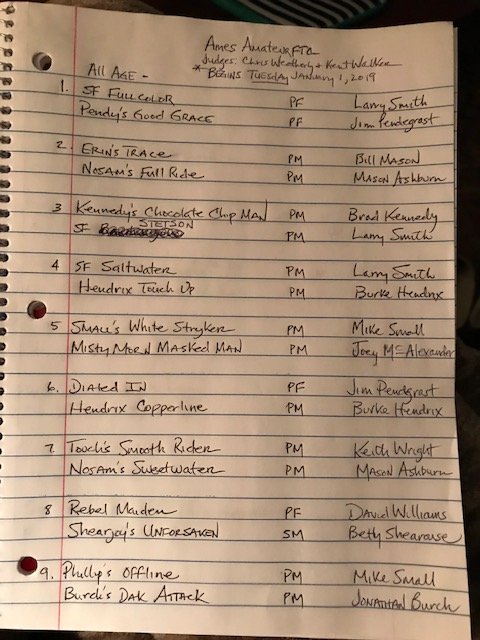 Ames Amateur FTC
Judges: Chris Weatherly & Kent Walker
All Age - * Begins Tuesday January 1, 2019
1. SF Full Color PF Larry Smith
Pendy's Good Grace PF Jim Pendegrast
2. Erin's Trace PM Bill Mason
Nosam's Full Ride PM Mason Ashburn
3 Kennedy's Chocolate Chip Man PM Brad Kennedy
SF Stetson PM Larry Smith
4 SF Saltwater PM Larry Smith
Hendrix Touch Up PM Burke Hendrix
5 Small's White Stryker PM Mike Small
Misty Morn Masked Man PM Joey McAlexander
6. Dialed In PF Jim Pendgrast
Hendrix Copperline PM Burke Hendrix
7. Smooth Rider PM Keith Wright
Nosam's Sweetwater PM Mason Ashburn
8 Rebel Maiden PF David Williams
Shearjoy's Unforsaken SM Betty Shearouse
9. Philly's Offline PM Mike Small
Burch's Dak Attack PM Jonathan Burch